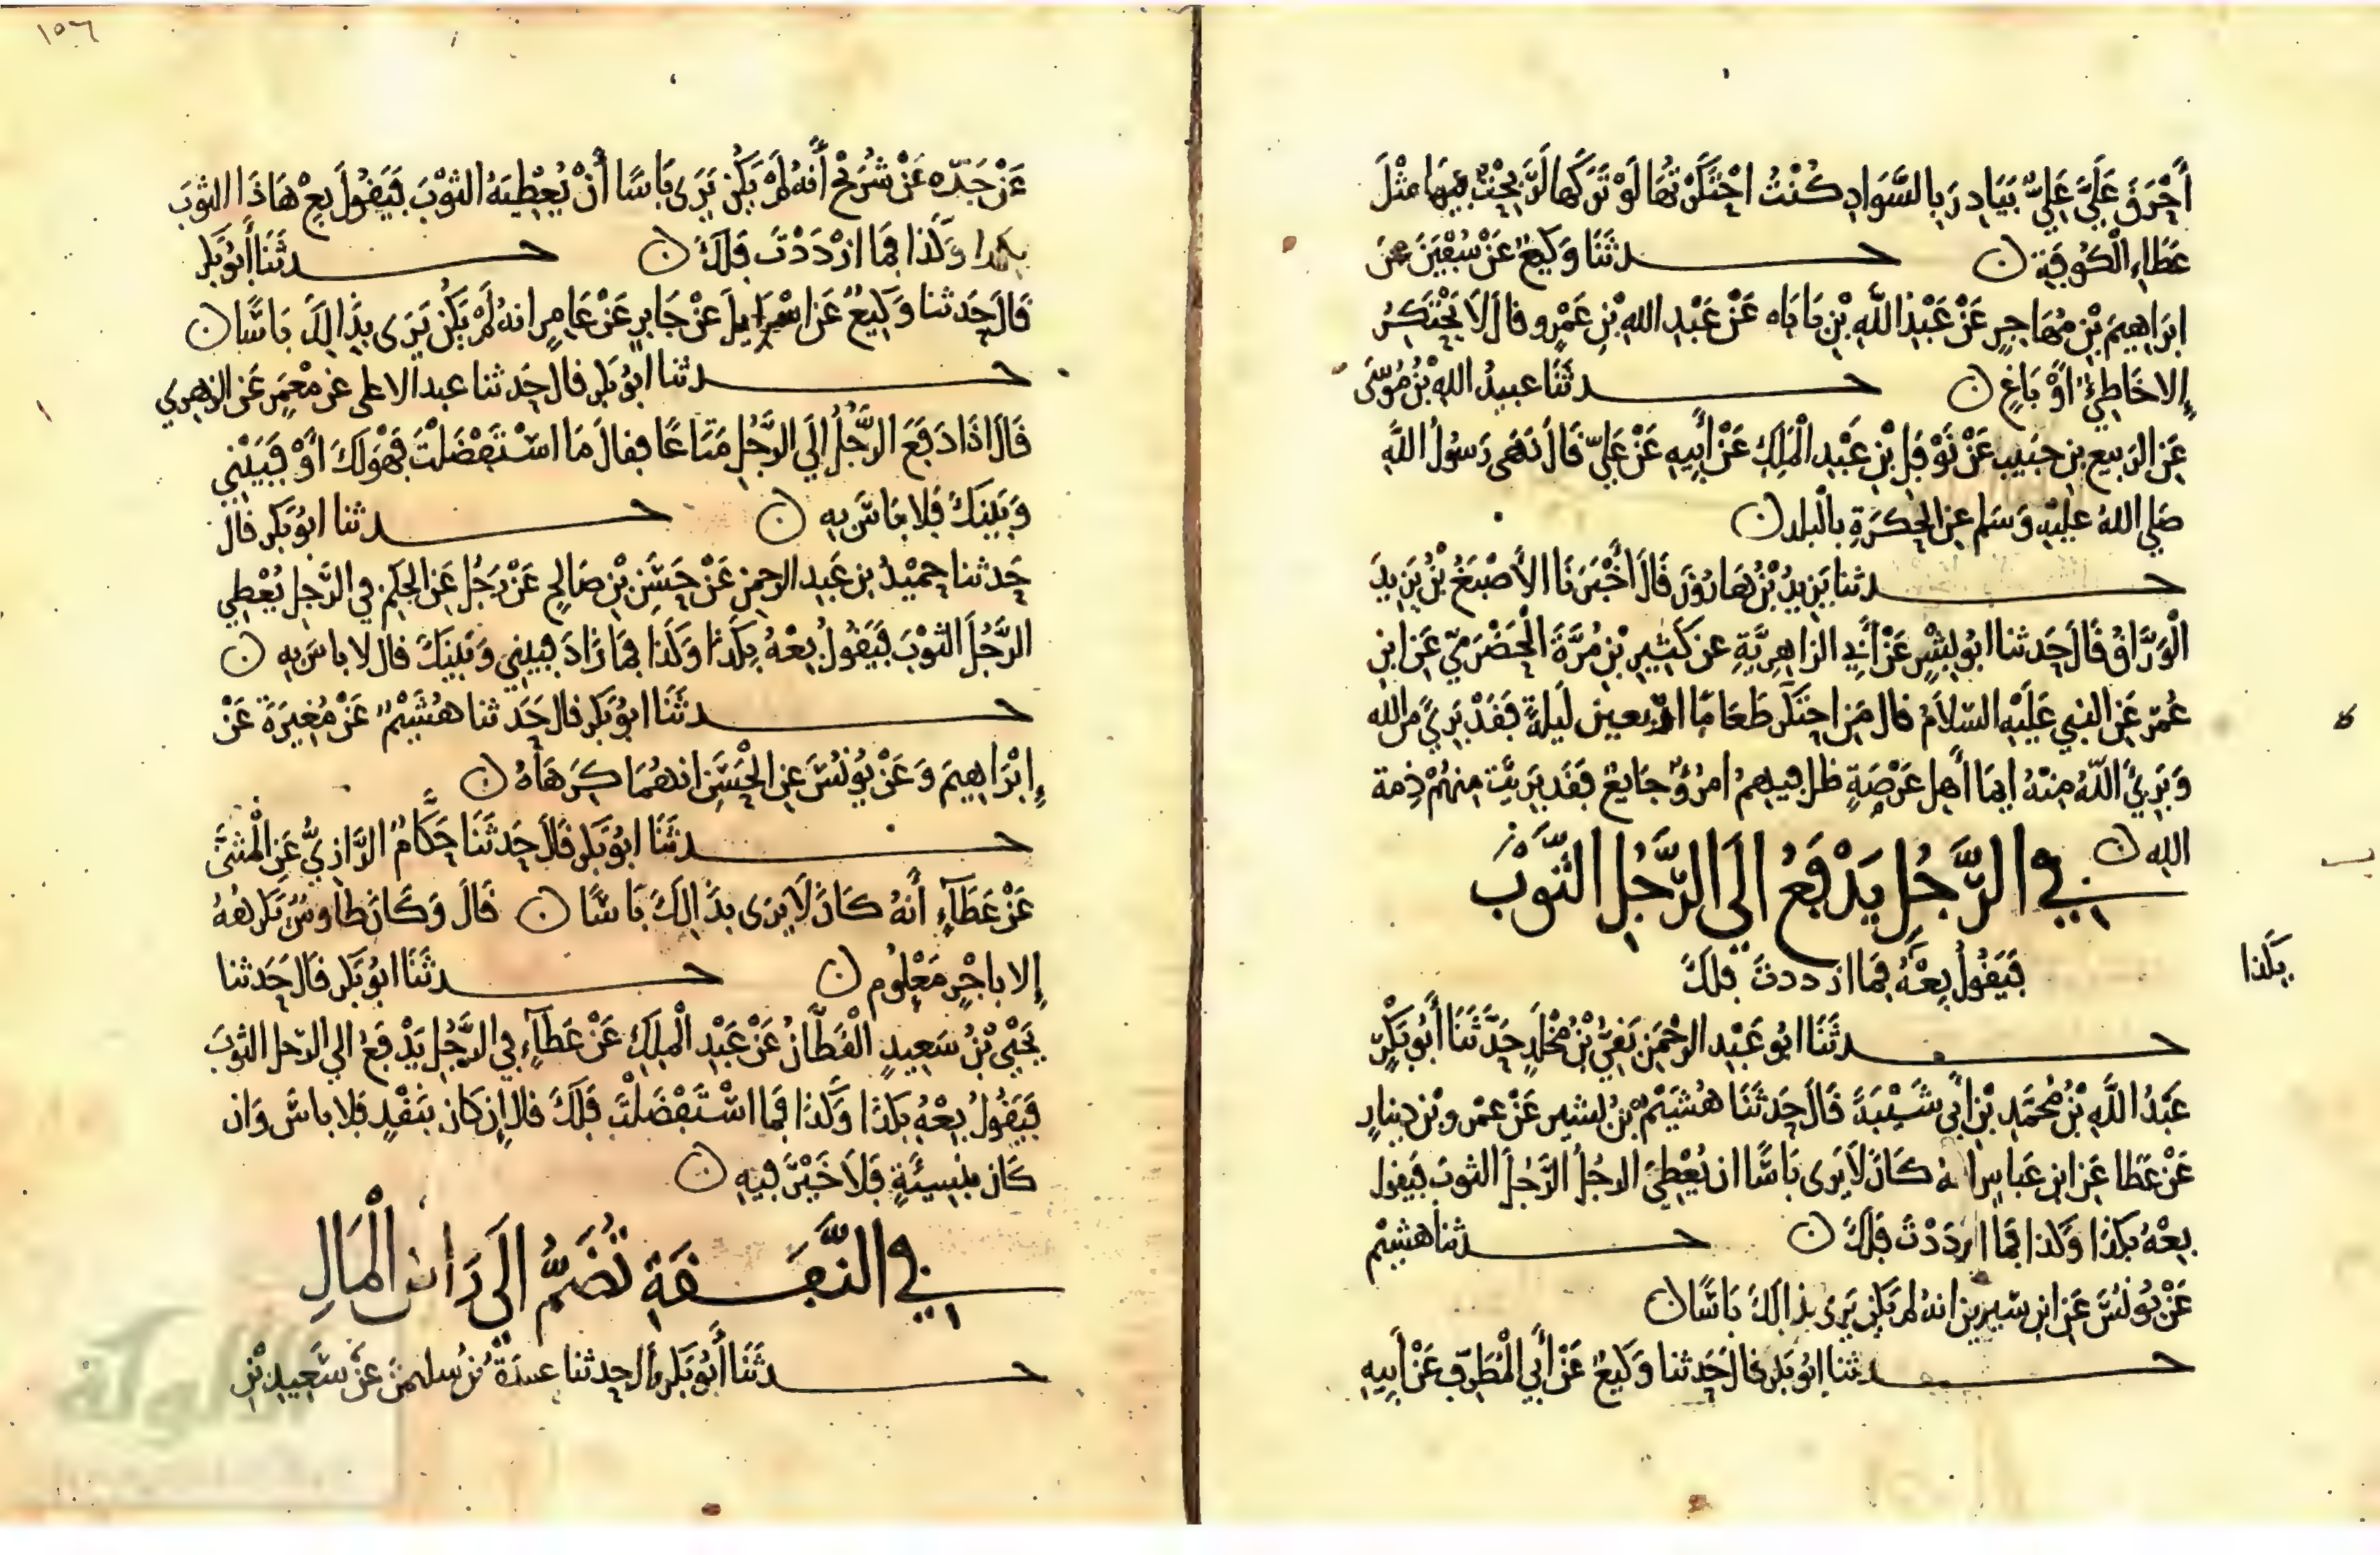 أَحْرَقَ عَلَيَّ عَلِيٌّ بَيَادِرَ بِالسَّوَادِ كُنْتُ احْتَكَرْتُهَا لَوْ تَرَكَهَا لَرَبِحْتُ فِيهَا مِثْلَ
عَطَاءِ الْكُوفَةِ ن حـــدثَنَا وَكِيعٌ عَنْ سُفْيَنَ عن
ابرَاهِيمَ بْنِ مُهَاجِرٍ عَنْ عَبْدِ اللَّهِ بْنِ بَابَاه عَنْ عَبْدِ اللهِ بْنِ عَمْرٍو قالَ لَا يَحْتَكِرُ
إلا خَاطِئٌ أَوْ بَاغٍ ن حـــدثَنَا عبيدُ اللهِ بْنُ مُوسَى
عَنِ الرَبيعِ بنِ حَبيبٍ عَنْ نَوْفَلِ بْنِ عَبْدِ الْمَلِكِ عَنْ أَبِيهِ عَنْ عَلِيٍّ قَالَ نَهَى رَسُولُ اللَّهِ
صَلى اللهُ عليهِ وَسَلم عن الحُكرَةِ بالْبلد ن
حـــدثنا يَزِيدُ بْنُ هَارُونَ قَالَ أَخْبَرَنَا الأَصْبَغُ بْنُ يَزِيدَ
الْوَرَّاقُ قَالَ حَدثنا ابُو بِشْرٍ عَنْ أَبِي الزاهِرِيَّةِ عن كَثِيرِ بْنِ مُرَّةَ الْحَضْرَمِيِّ عَنِ ابنِ
عُمَرَ عَنِ النبي عَلَيْهِ السّلاَمُ قال مَنِ احتَكَرَ طَعَامًا اربعين لَيلَةً فَقَدْ بَرِئَ من الله
وَبَرِئَ اللَّهُ مِنْهُ ايمَا أَهلِ عَرْصَةٍ ظل فيهِمُ امرُؤٌ جَايعٌ فَقَد بَرِئت مِنهُمْ ذِمة
الله ن
في الرَّجُلِ يَدْفَعُ إلَى الرَّجُلِ الثَّوْبَ
فَيَقُولُ بِعْهُ فَمَا ازددتَ فلكَ
بكَذا
حـــدثَنَا ابُو عَبْدِ الرحْمَنِ بَقِيُّ بْنُ مَخْلَدٍ حَدَّثَنَا أَبُو بَكْرٍ
عَبْدُ اللَّهِ بْنُ مُحَمَّدِ بْنِ أَبِي شَيْبَةَ قَالَ حَدثَنَا هُشَيْمُ بْنُ بشيرٍ عَنْ عمْرِو بْنِ دينارٍ
عَنْ عَطا عَنِ ابنِ عَباسٍ انهُ كَانَ لَا يَرَى بَاسًا ان يُعْطِيَ الرجُلُ الرَّجُلَ الثوبَ فَيَقول
بِعْهُ بِكَذَا وَكذا فما ازدَدْتَ فَلَكَ ن حـــدثنا هشيْم
عَنْ يُونُسَ عَنِ ابن سيرين انه لم يَكن يَرَى بذالكَ بَاسًا ن
حـــدثنا ابُو بَكرٍ قال حَدثنا وَكيعٌ عَنْ أَبِي الْمُطَرِّفِ عَنْ أَبِيهِ
١٥٦
عَنْ جَدّه عَنْ شُرَيْحٍ أَنهُ لَمْ يَكُنْ يَرَى بَاسًا أَنْ يُعْطِيَهُ الثوْبَ فَيَقُولَ بِعْ هَاذَا الثوبَ
بكذا وَكَذا فمَا ازْدَدْتَ فَلَكَ ن حـــدثَنَا أَبُو بَكر
قَالَ حَدثنا وَكِيعٌ عَنْ اسْرَايلَ عَنْ جَابِرٍ عَنْ عَامِرٍ انهُ لَمْ يَكُنْ يَرَى بِذَالِكَ بَاسًا ن
حـــدثنا ابُو بَكرٍ قال حَدثنا عبد الاعلى عن مَعْمَرٍ عَنِ الزهري
قَالَ اذَا دَفَعَ الرَّجُلُ إلَى الرَّجُلِ مَتَاعًا فقالَ مَا اسْتَفْضَلْتَ فَهُوَ لَكَ أَوْ فَبَيْنِي
وَبَينَكَ فَلا بَاسَ بِهِ ن حـــدثنا ابُو بَكر قال
حَدثنا حميْدُ بن عَبد الرحمن عَنْ حَسَنِ بْنِ صَالحٍ عَنْ رَجُل عَنِ الحكَم في الرَّجل يُعْطِي
الرَّجُلَ الثوْبَ فَيَقُولُ بِعْهُ بِكَذَا وَكَذا فما زَادَ فبيني وَبَينَكَ قال لا باسَ بِهِ ن
حـــدثَنَا ابُو بَكر قال حَدثنا هُشَيْمٌ عَنْ مُغِيرَةَ عَنْ
إِبْرَاهِيمَ وَعَنْ يُونُسَ عن الْحَسَنِ انهُمَا كَرِهَاهُ ن
حـــدثَنَا ابُو بَكر قَالَ حَدثَنَا حَكَّامٌ الرَّازِيُّ عَنِ الْمثنَّى
عَنْ عَطَآءٍ أَنهُ كَانَ لَا يرَى بِذَالِكَ بَاسًا ن قَالَ وَكَانَ طاوسٌ يَكرَهُهُ
إلا باجْرٍ مَعْلومٍ ن حـــدثَنَا ابُو بَكر قَالَ حَدثنا
يَحْيَى بْنُ سَعِيدٍ الْقَطَّانُ عَنْ عَبْدِ الْمَلِكِ عَنْ عَطَآءٍ في الرَّجُلِ يَدْفَعُ الى الرّجل الثوبَ
فَيَقُولُ بِعْهُ بِكَذَا وَكَذا فما اسْتَفْضَلْتَ فَلَكَ قال إن كان بنَقْدٍ فلا باسَ وَان
كَان بِنَسِيئَةٍ فَلَا خَيْرَ فيهِ ن
في النَّفَقَةِ تُضَمُّ إلَى رَاسِ الْمَالِ
حـــدثَنَا أَبُو بَكر قال حدثنا عبدَةُ بْنُ سليمنَ عَنْ سَعِيدِ بْنِ
الألوكة